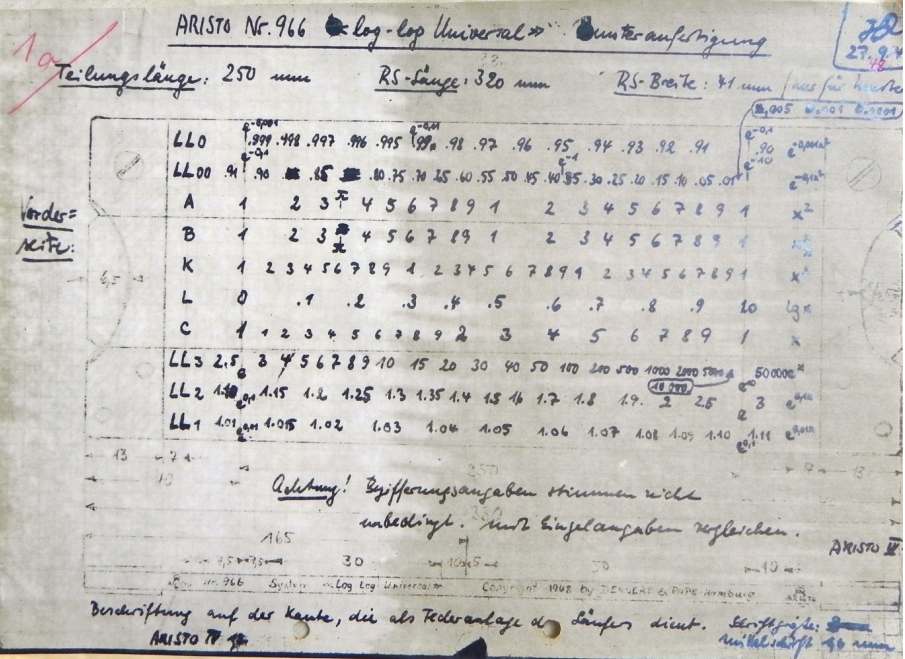 ARISTO Nr. 966 «log-log Universal» Musteranfertigung
1a
23.9.
Teilungslänge: 250 mm RS-Länge: 320 mm RS-Breite: 41 mm
LL0 .999 .998 .997 .996 .995 .99 .98 .97 .96 .95 .94 .93 .92 .91 .90
LL00 .91 .90 .85 .80 .75 .70 .65 .60 .55 .50 .45 .40 .35 .30 .25 .20 .15 .10 .05 .01
A 1 2 3 π 4 5 6 7 8 9 1 2 3 4 5 6 7 8 9 1 x²
Vorder=
seite:
B 1 2 3 4 5 6 7 8 9 1 2 3 4 5 6 7 8 9 1
K 1 2 3 4 5 6 7 8 9 1 2 3 4 5 6 7 8 9 1 2 3 4 5 6 7 8 9 1
6,5
L 0 .1 .2 .3 .4 .5 .6 .7 .8 .9 lg x
C 1 1 2 3 4 5 6 7 8 9 2 3 4 5 6 7 8 9 1 x
LL3 2,5 e 3 4 5 6 7 8 9 10 15 20 30 40 50 100 200 500 1000 2000 5000 50000 eˣ
10 000
LL2 1.15 1.2 1.25 1.3 1.35 1.4 1.5 1.6 1.7 1.8 1.9 2 2.5 e 3
LL1 1.01 1.015 1.02 1.03 1.04 1.05 1.06 1.07 1.08 1.09 1.10 1.11
13 7 250 7 13
Achtung! Bezifferungsangaben stimmen nicht
unbedingt. Mit Einzelangaben vergleichen.
165
ARISTO
30 10 5 30 10
Nr. 966 System «Log Log Universal» Copyright 1948 by DENNERT & PAPE Hamburg
Beschriftung auf der Kante, die als Federanlage des Läufers dient.
Schriftgröße:
ARISTO
Mittelschrift mm